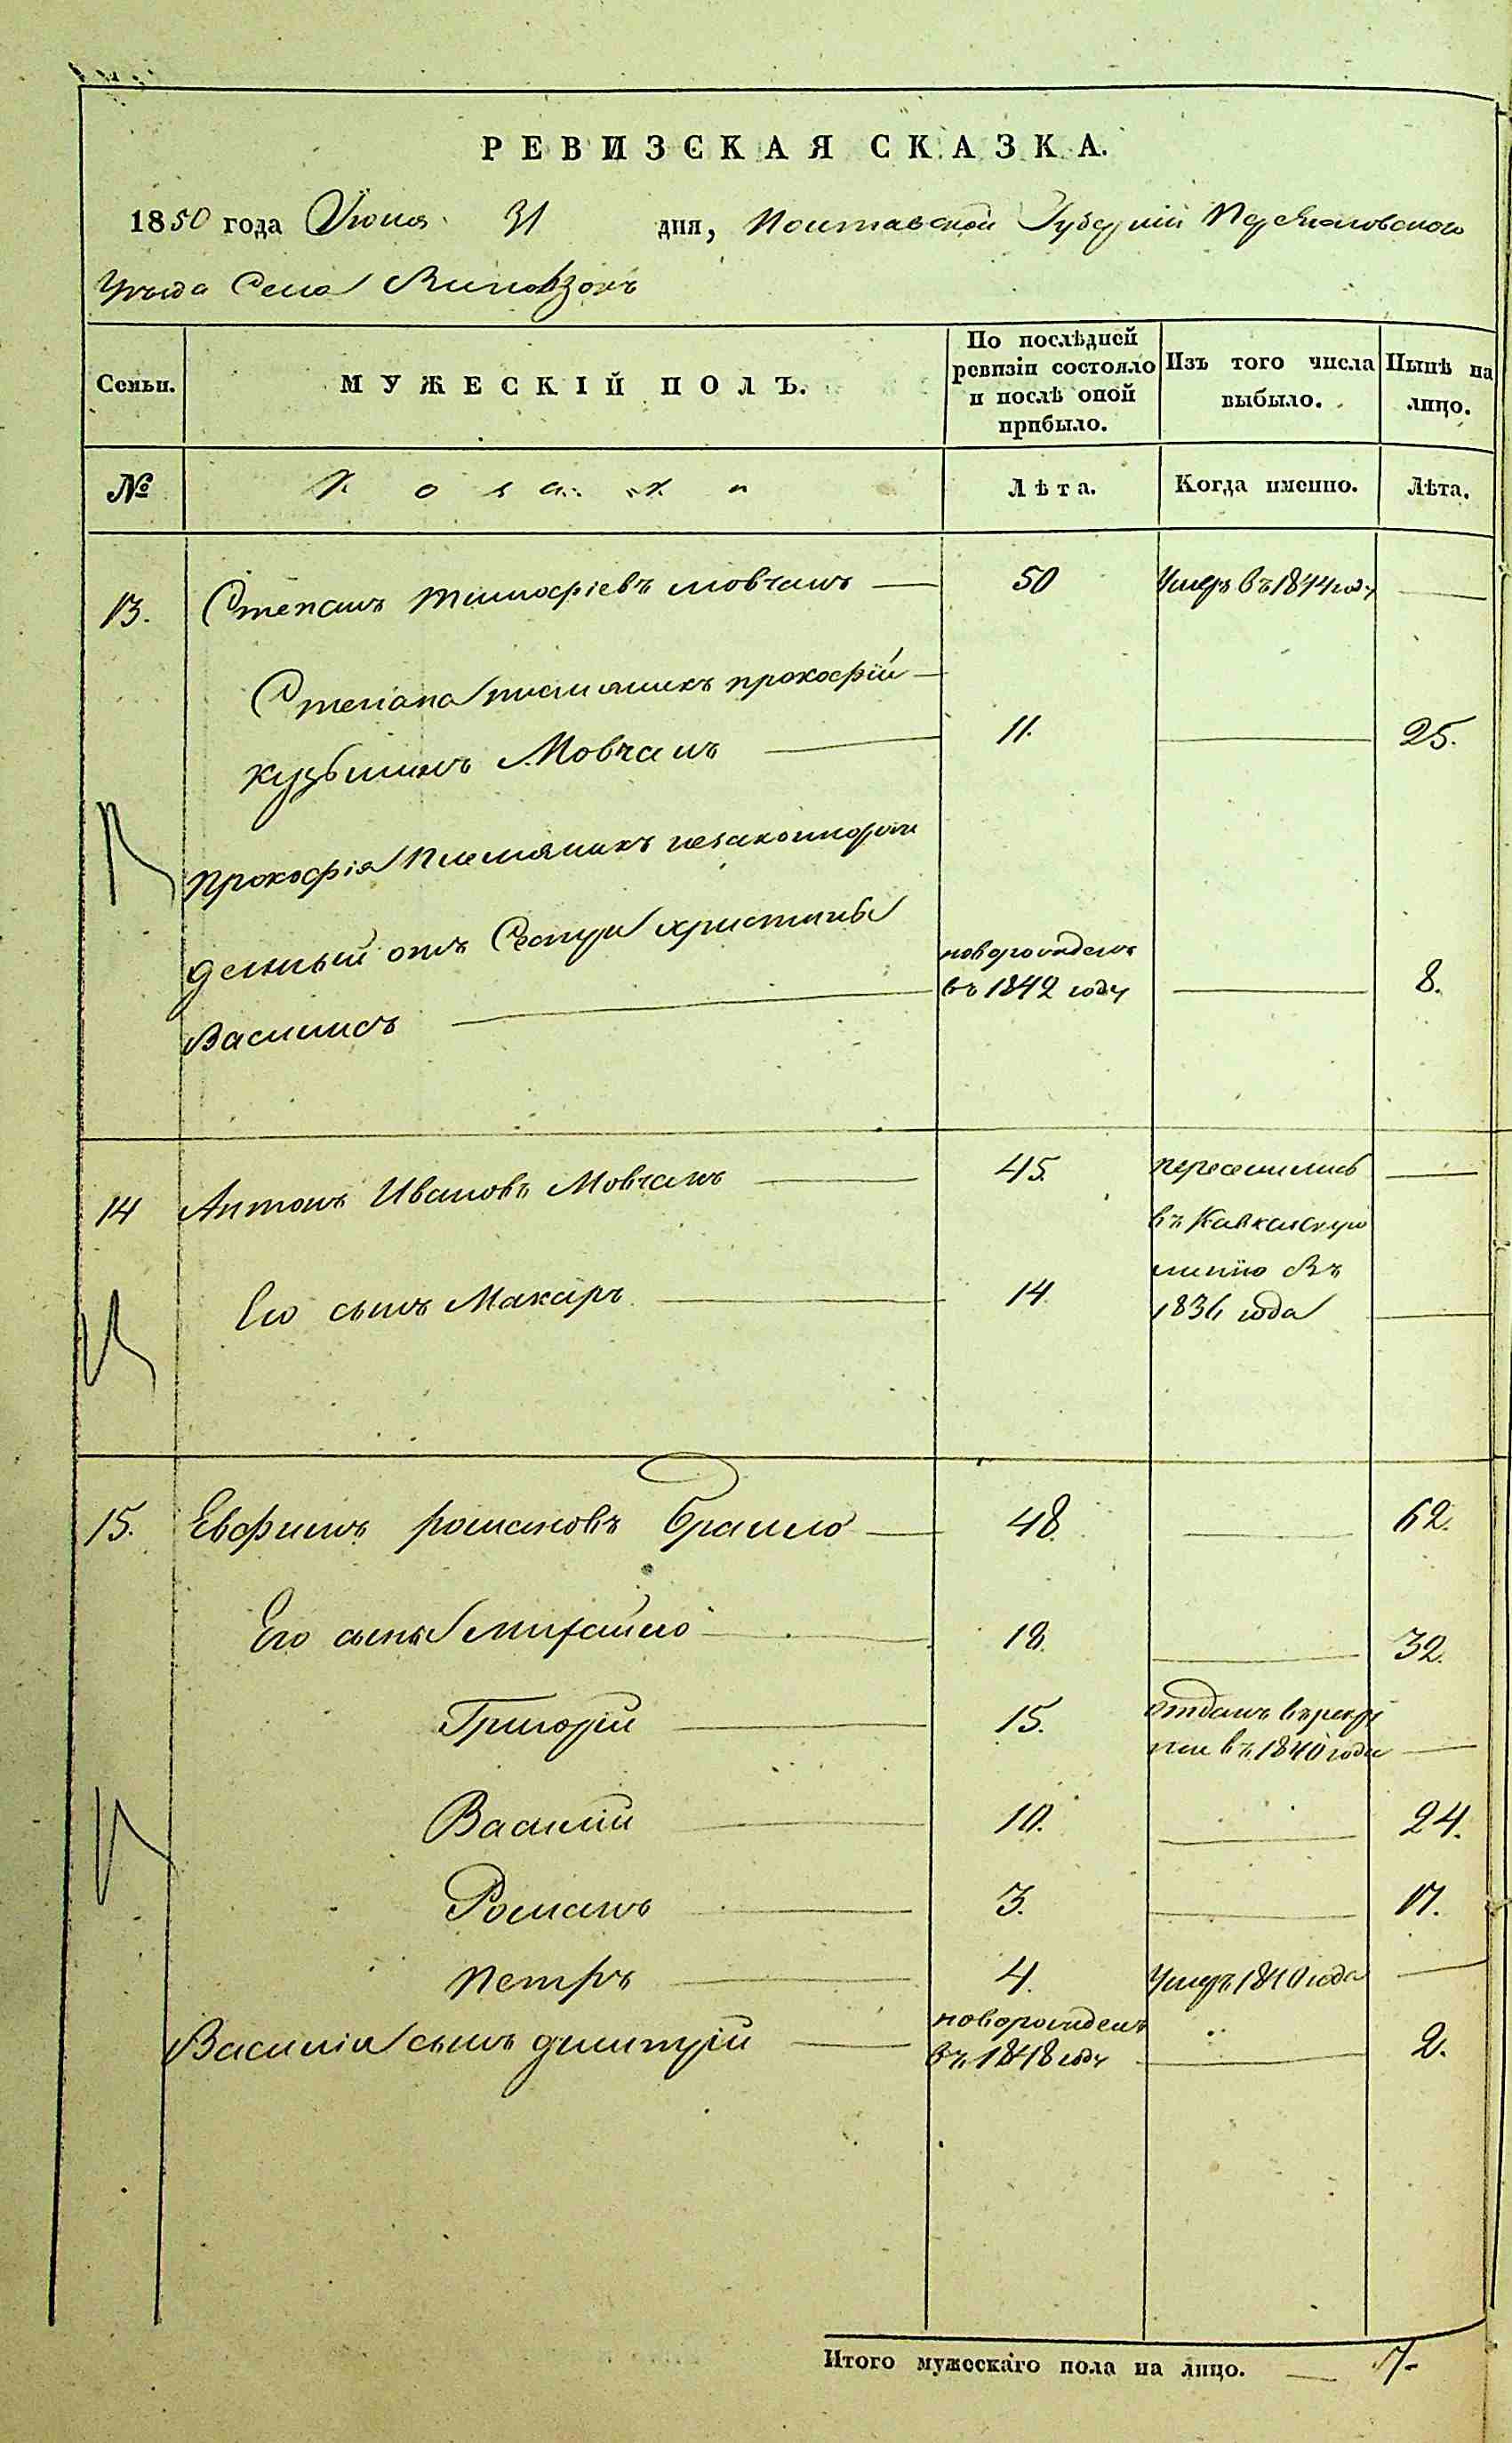 РЕВИЗСКАЯ СКАЗКА.
1850 года Июля 31 дня, Полтавской Губерніи Переяловского
Уезда Села
Семьи. МУЖЕСКІЙ ПОЛЪ. По послѣдней ревизіи состояло и послѣ оной прибыло. Изъ того числа выбыло. Нынѣ на лицо.
№ Козаки Лѣта. Когда именно. Лѣта.
13. Степанъ Тимофіевъ Мовчанъ — 50 Умеръ въ 1844 году —
Степана племяникъ прокофій —
кузьминъ Мовчанъ — 11. — 25.
Прокофія Племяникъ незаконнорож
денный отъ Сестры христины новорожденъ
Василій — въ 1842 году — 8.
14 Антонъ Ивановъ Мовчанъ — 45. переселились —
въ Кавказкую
Его сынъ Макаръ — 14. линію Въ
1836 года —
15. Евфимъ романовъ Браило — 48. — 62.
Его сынъ михайло — 18. — 32.
Григорій — 15. отданъ в рекру
ты въ 1840 года —
Василій — 10. — 24.
Романъ — 3. — 17.
Петръ — 4. Умеръ 1840 года —
Василія сынъ дмитрій — новорожденъ
въ 1848 году — 2.
Итого мужескаго пола на лицо. — 7.